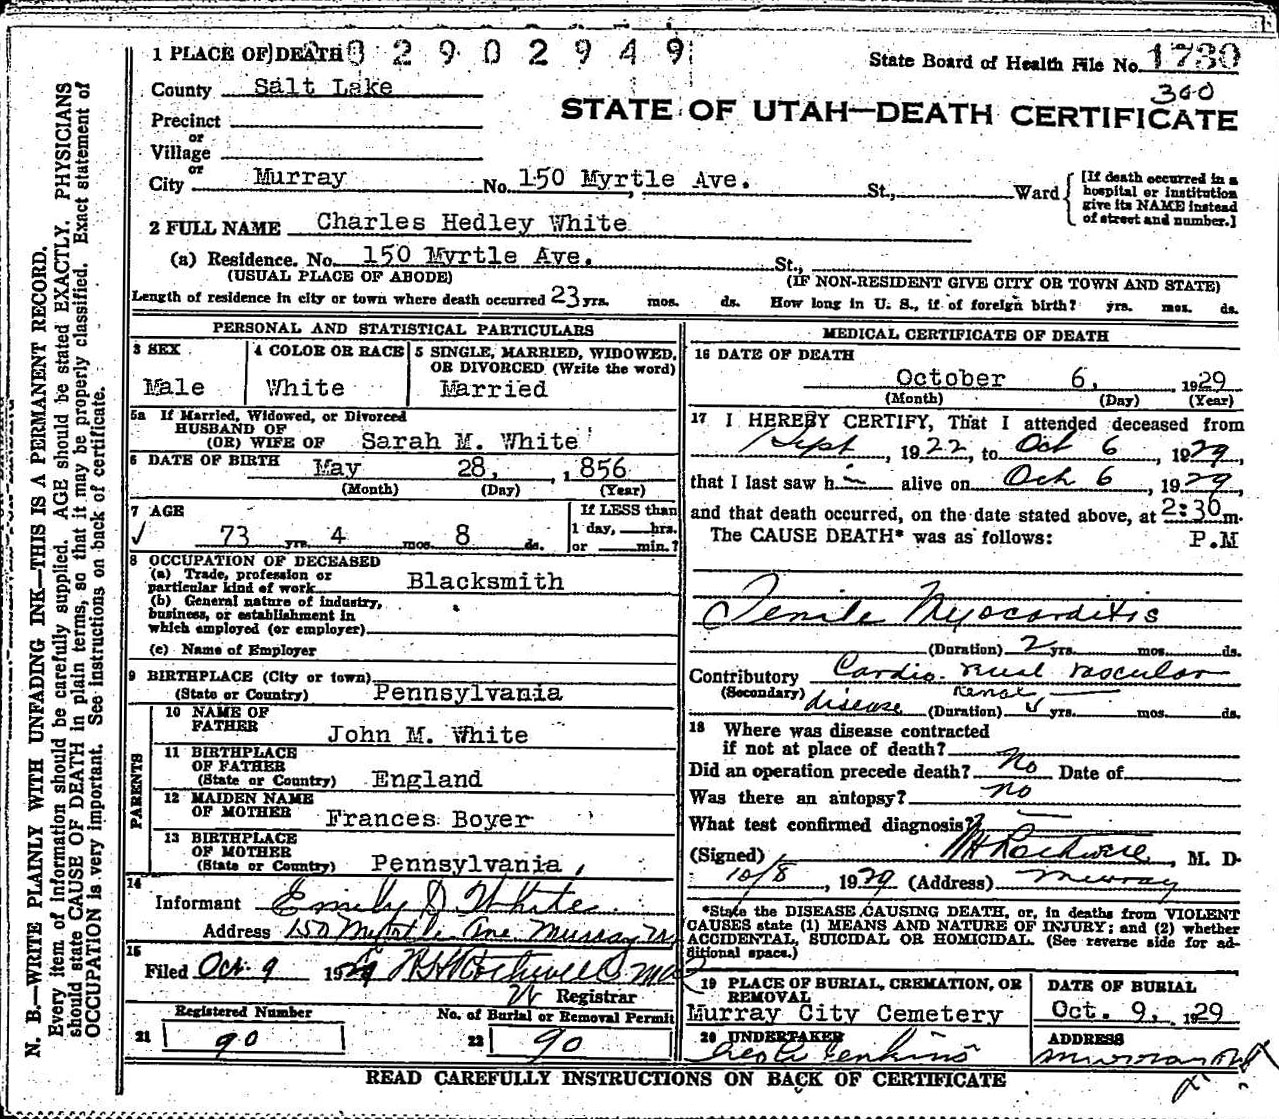 1 PLACE OF DEATH 0 2 9 0 2 9 4 9
State Board of Health File No. 1730
300
County Salt Lake
STATE OF UTAH—DEATH CERTIFICATE
Precinct
or
Village
or
City Murray No. 150 Myrtle Ave. St., Ward
[If death occurred in a hospital or institution give its NAME instead of street and number.]
2 FULL NAME Charles Hedley White
(a) Residence. No. 150 Myrtle Ave. St.,
(USUAL PLACE OF ABODE) (IF NON-RESIDENT GIVE CITY OR TOWN AND STATE)
Length of residence in city or town where death occurred 23 yrs. mos. ds. How long in U. S., if of foreign birth? yrs. mos. ds.
PERSONAL AND STATISTICAL PARTICULARS
3 SEX
Male
4 COLOR OR RACE
White
5 SINGLE, MARRIED, WIDOWED,
OR DIVORCED (Write the word)
Married
5a If Married, Widowed, or Divorced
HUSBAND OF
(OR) WIFE OF Sarah M. White
6 DATE OF BIRTH May 28, , 856
(Month) (Day) (Year)
7 AGE
73 yrs. 4 mos. 8 ds.
If LESS than
1 day, hrs.
or min.?
8 OCCUPATION OF DECEASED
(a) Trade, profession or
particular kind of work Blacksmith
(b) General nature of industry,
business, or establishment in
which employed (or employer)
(c) Name of Employer
9 BIRTHPLACE (City or town)
(State or Country) Pennsylvania
PARENTS
10 NAME OF
FATHER John M. White
11 BIRTHPLACE
OF FATHER
(State or Country) England
12 MAIDEN NAME
OF MOTHER Frances Boyer
13 BIRTHPLACE
OF MOTHER
(State or Country) Pennsylvania
14
Informant Emily D White
Address 150 Myrtle Ave Murray
15
Filed Oct. 9 1929
Registrar
Registered Number
21 90
No. of Burial or Removal Permit
22 90
MEDICAL CERTIFICATE OF DEATH
16 DATE OF DEATH
October 6, 1929
(Month) (Day) (Year)
17 I HEREBY CERTIFY, That I attended deceased from
Sept , 1922, to Oct 6 , 1929,
that I last saw h alive on Oct 6 , 1929,
and that death occurred, on the date stated above, at 2:30 m.
The CAUSE DEATH* was as follows: P.M
Senile Myocarditis
(Duration) 2 yrs. mos. ds.
Contributory Cardio vascular
(Secondary) disease renal (Duration) yrs. mos. ds.
18 Where was disease contracted
if not at place of death?
Did an operation precede death? No Date of
Was there an autopsy? no
What test confirmed diagnosis?
(Signed) Rockwell, M. D.
10/8, 1929 (Address) Murray
*State the DISEASE CAUSING DEATH, or, in deaths from VIOLENT
CAUSES state (1) MEANS AND NATURE OF INJURY; and (2) whether
ACCIDENTAL, SUICIDAL OR HOMICIDAL. (See reverse side for ad-
ditional space.)
19 PLACE OF BURIAL, CREMATION, OR
REMOVAL
Murray City Cemetery
DATE OF BURIAL
Oct. 9, 1929
20 UNDERTAKER
Jenkins
ADDRESS
Murray
READ CAREFULLY INSTRUCTIONS ON BACK OF CERTIFICATE
N. B.—WRITE PLAINLY WITH UNFADING INK—THIS IS A PERMANENT RECORD.
Every item of information should be carefully supplied. AGE should be stated EXACTLY. PHYSICIANS
should state CAUSE OF DEATH in plain terms, so that it may be properly classified. Exact statement of
OCCUPATION is very important. See instructions on back of certificate.